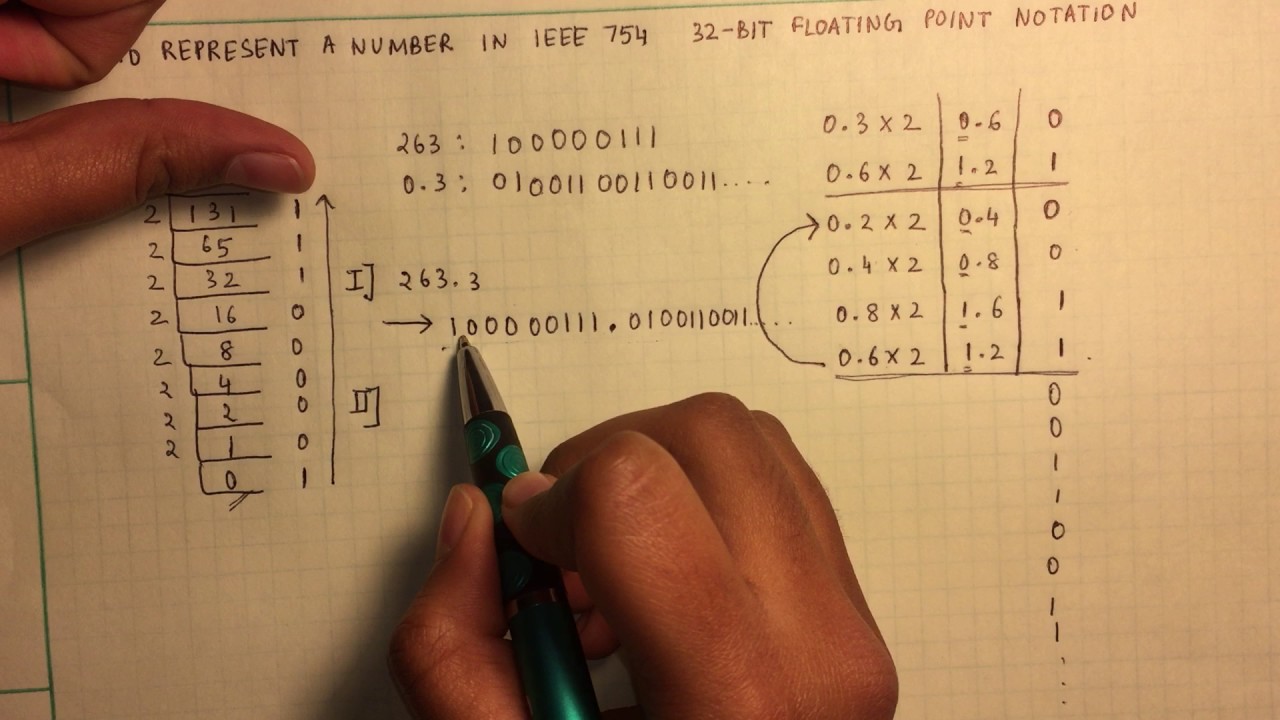 TO REPRESENT A NUMBER IN IEEE 754 32-BIT FLOATING POINT NOTATION
263 : 100000111
0.3 : 01001100110011....
2 131 1
2 65 1
2 32 1
2 16 0
2 8 0
2 4 0
2 2 0
2 1 0
0 1
I] 263.3
→ 100000111.0100110011.....
II]
0.3 × 2 0.6 0
0.6 × 2 1.2 1
0.2 × 2 0.4 0
0.4 × 2 0.8 0
0.8 × 2 1.6 1
0.6 × 2 1.2 1
0
0
1
1
0
0
1
1